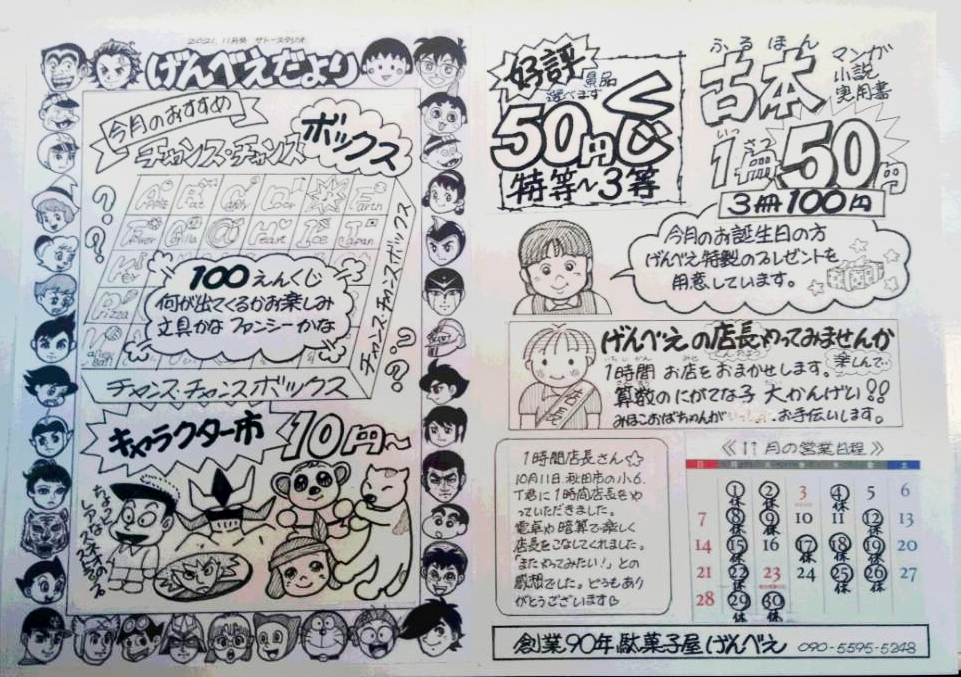 2021.11月号 サトースタジオ
げんべえだより
今月のおすすめ
チャンス・チャンス
ボックス
Apple
Earth
Flower
Heart
Ice
Japan
100えんくじ
何が出てくるかお楽しみ
文具かな ファンシーかな
???
チャンス・チャンスボックス
チャンス・チャンスボックス
???
キャラクター市
10円〜
ちょっと
好評
景品
選べます
50円くじ
特等〜3等
ふるほん
古本
マンガ
小説
実用書
いっさつ
1冊50円
3冊100円
今月のお誕生日の方
げんべえ特製のプレゼントを
用意しています。
げんべえの店長やってみませんか
いちじかん みせ
1時間 お店をおまかせします。
楽しんで
算数のにがてな子 大かんげい!!
みほこおばちゃんがいっしょにお手伝いします。
店長
1時間店長さん☆
10月11日、秋田市の小6、
T君に1時間店長をや
っていただきました。
電卓や暗算で楽しく
店長をこなしてくれました。
「またやってみたい!」との
感想でした。どうもあり
がとうございます
《11月の営業日程》
日 月 火 水 木 金 土
1 2 3 4 5 6
休 休 休
7 8 9 10 11 12 13
休 休 休
14 15 16 17 18 19 20
休 休 休 休
21 22 23 24 25 26 27
休 休 休
28 29 30
休 休
創業90年駄菓子屋げんべえ 090-5595-5248